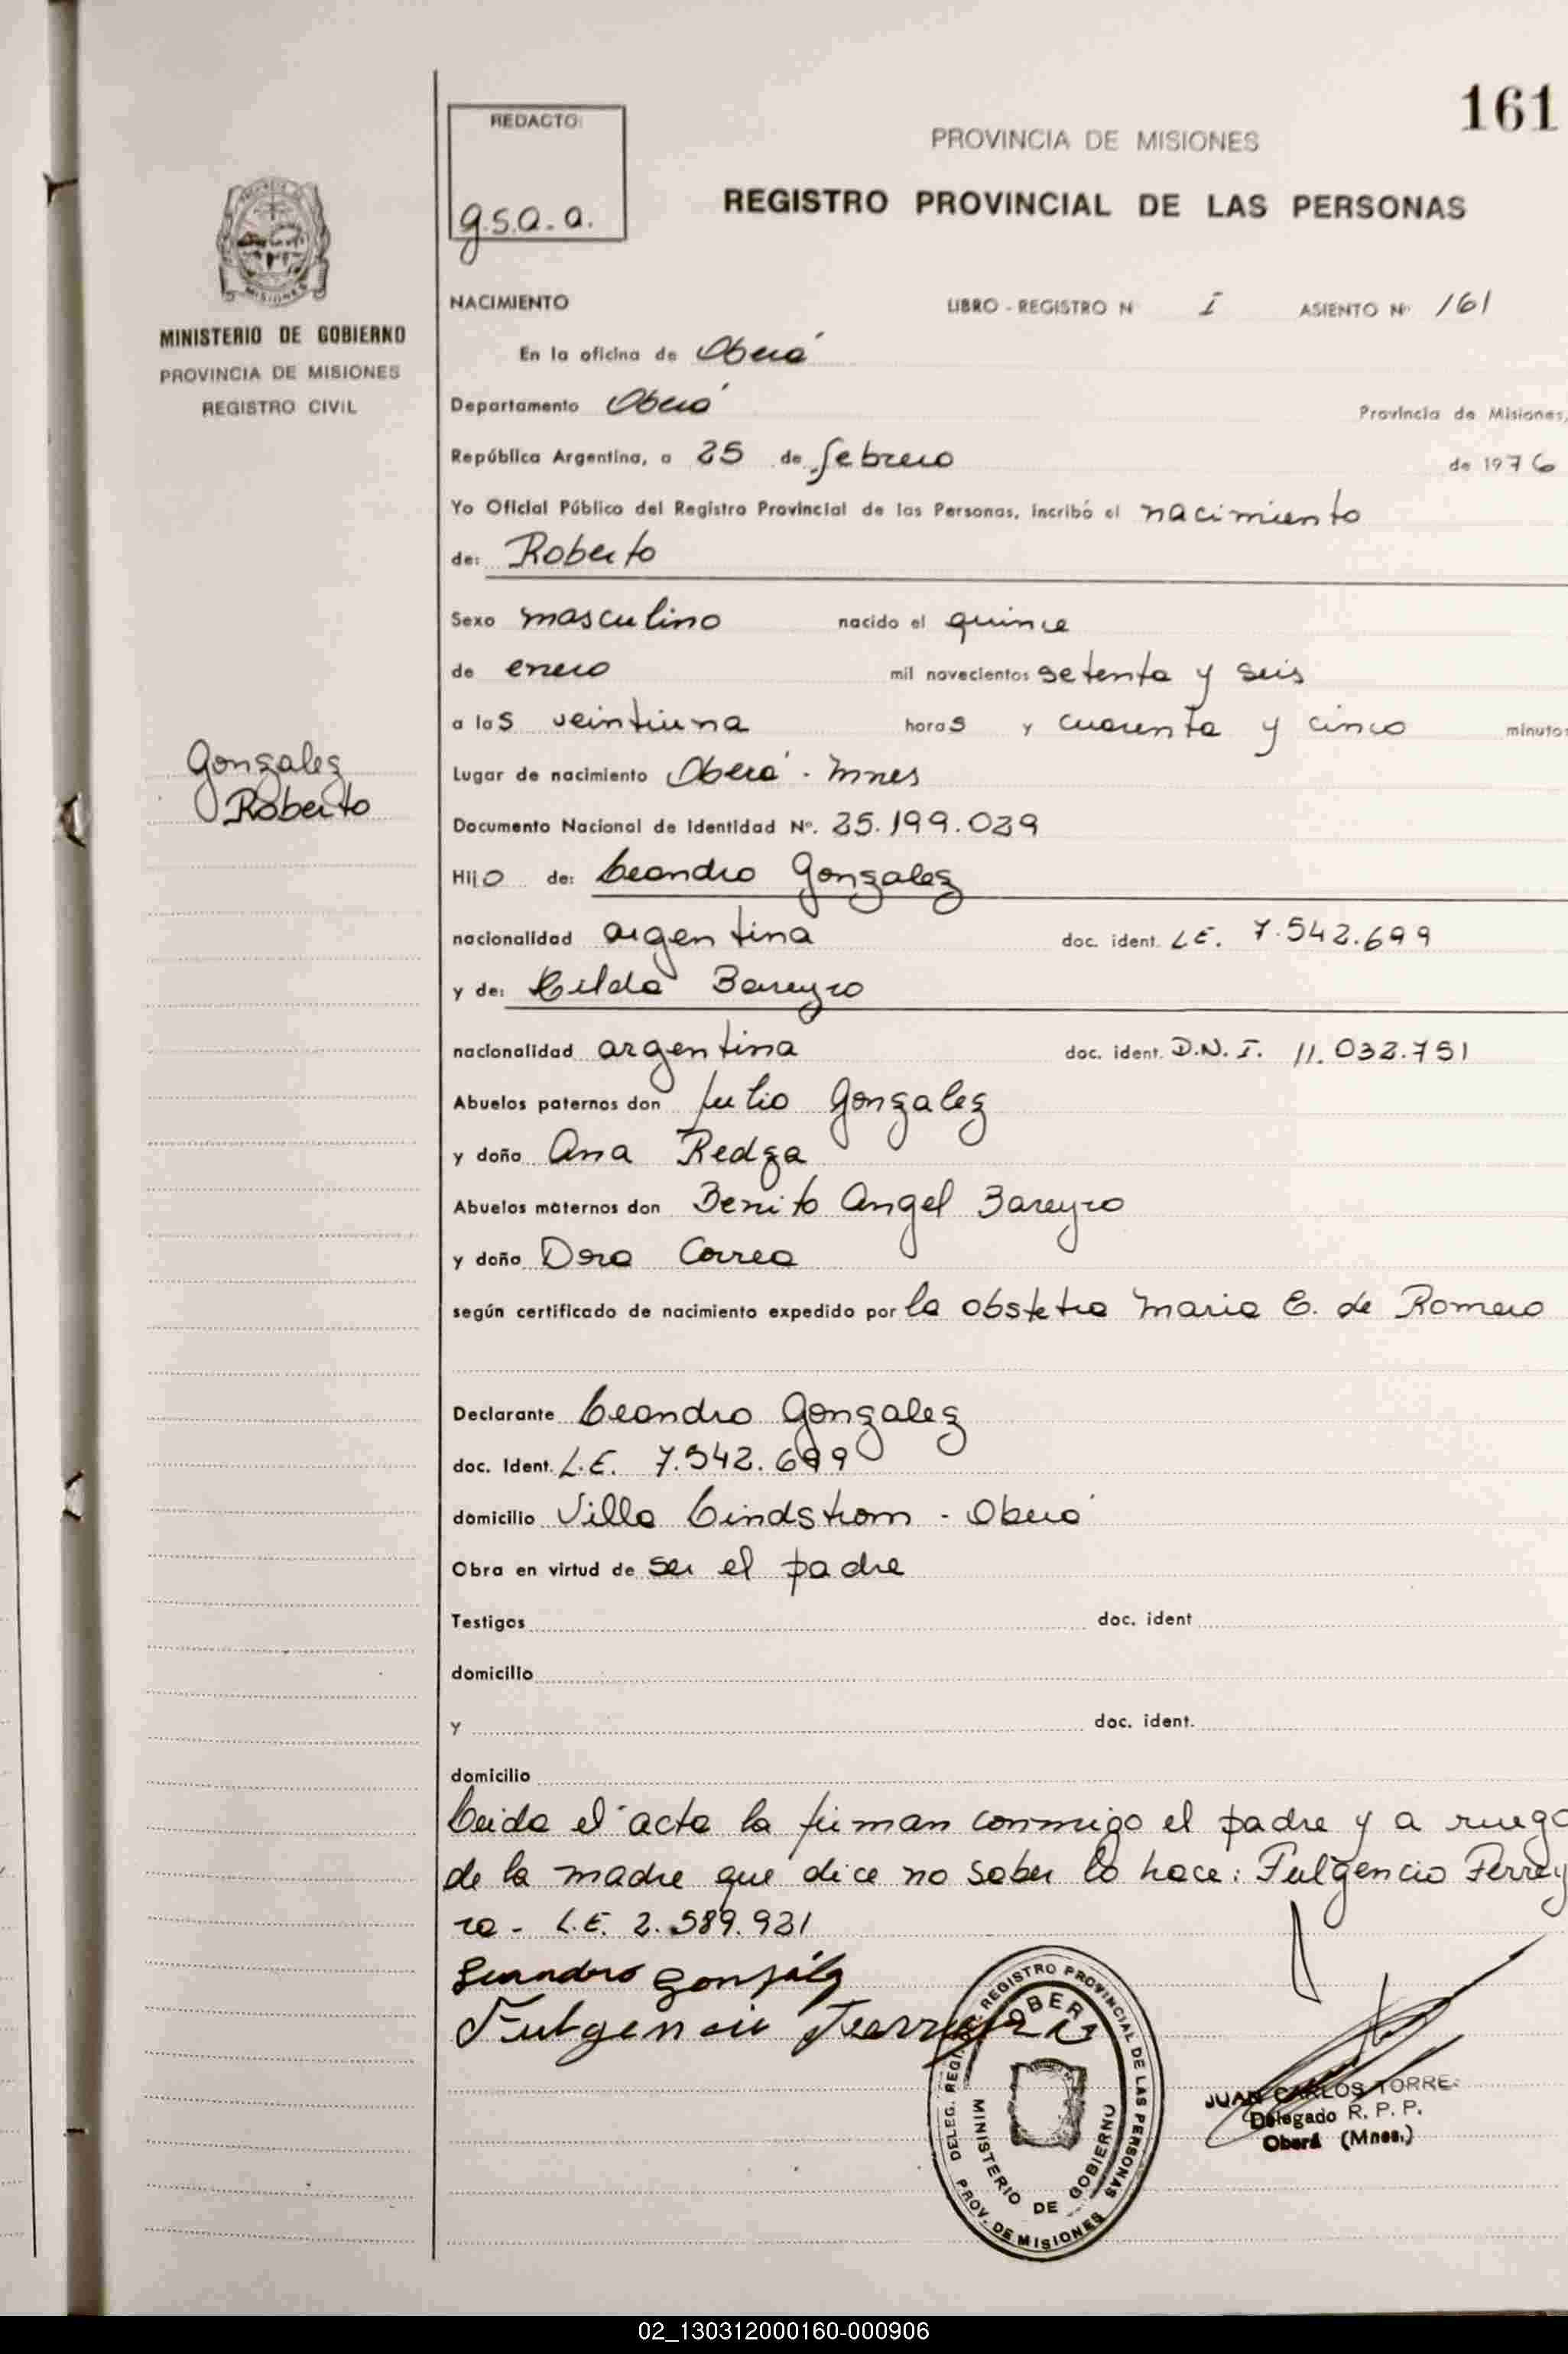 161
REDACTO:
g.s.a.a.
PROVINCIA DE MISIONES
REGISTRO PROVINCIAL DE LAS PERSONAS
MISIONES
MINISTERIO DE GOBIERNO
PROVINCIA DE MISIONES
REGISTRO CIVIL
NACIMIENTO LIBRO - REGISTRO N I ASIENTO Nº 161
En la oficina de Oberá
Departamento Oberá Provincia de Misiones,
República Argentina, a 25 de febrero de 1976
Yo Oficial Público del Registro Provincial de las Personas, incribó el nacimiento
de: Roberto
Sexo masculino nacido el quince
de enero mil novecientos setenta y seis
a las veintiuna horas y cuarenta y cinco minutos
Gonzalez
Roberto
Lugar de nacimiento Oberá - Mnes
Documento Nacional de Identidad Nº. 25.199.029
Hijo de: Leandro Gonzalez
nacionalidad argentina doc. ident. L.E. 7.542.699
y de: Hilda Bareyro
nacionalidad argentina doc. ident. D.N.I. 11.032.751
Abuelos paternos don Julio Gonzalez
y doña Ana Redza
Abuelos maternos don Benito Angel Bareyro
y doña Dora Correa
según certificado de nacimiento expedido por la obstetra Maria E. de Romero
Declarante Leandro Gonzalez
doc. Ident. L.E. 7.542.699
domicilio Villa Lindstrom - Oberá
Obra en virtud de ser el padre
Testigos doc. ident
domicilio
y doc. ident.
domicilio
Leida el acta la firman conmigo el padre y a ruego
de la madre que dice no saber lo hace: Fulgencio Ferrey
ra - L.E. 2.589.921
Leandro Gonzalez
Fulgencio Ferreyra
DELEG. REGISTRO PROVINCIAL DE LAS PERSONAS
OBERA
MINISTERIO DE GOBIERNO
PROV. DE MISIONES
JUAN CARLOS TORRES
Delegado R. P. P.
Oberá (Mnes.)
02_130312000160-000906